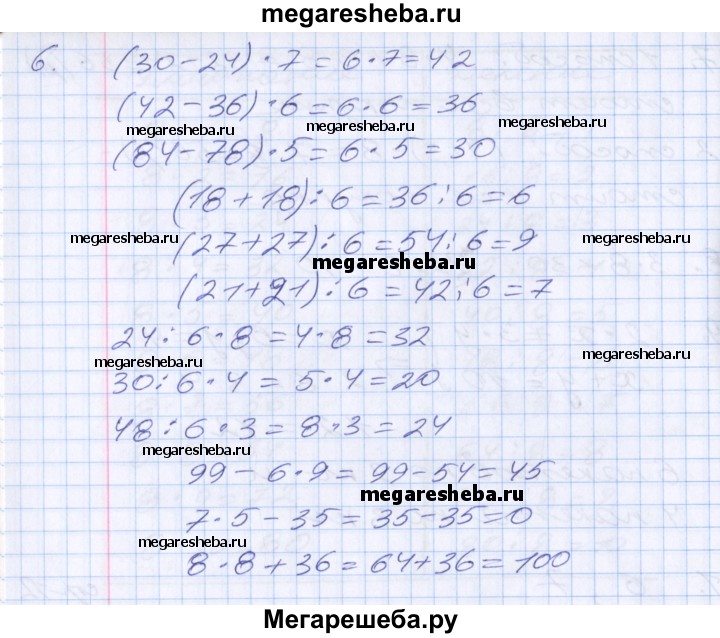 megaresheba.ru
6. (30-24)·7=6·7=42
(42-36)·6=6·6=36
megaresheba.ru megaresheba.ru megaresheba.ru
(84-78)·5=6·5=30
(18+18):6=36:6=6
megaresheba.ru (27+27):6=54:6=9 megaresheba.ru
megaresheba.ru
(21+21):6=42:6=7
24:6·8=4·8=32
megaresheba.ru megaresheba.ru
30:6·4=5·4=20
48:6·3=8·3=24
megaresheba.ru
99-6·9=99-54=45
megaresheba.ru
7·5-35=35-35=0
megaresheba.ru megaresheba.ru
8·8+36=64+36=100
Мегарешеба.ру